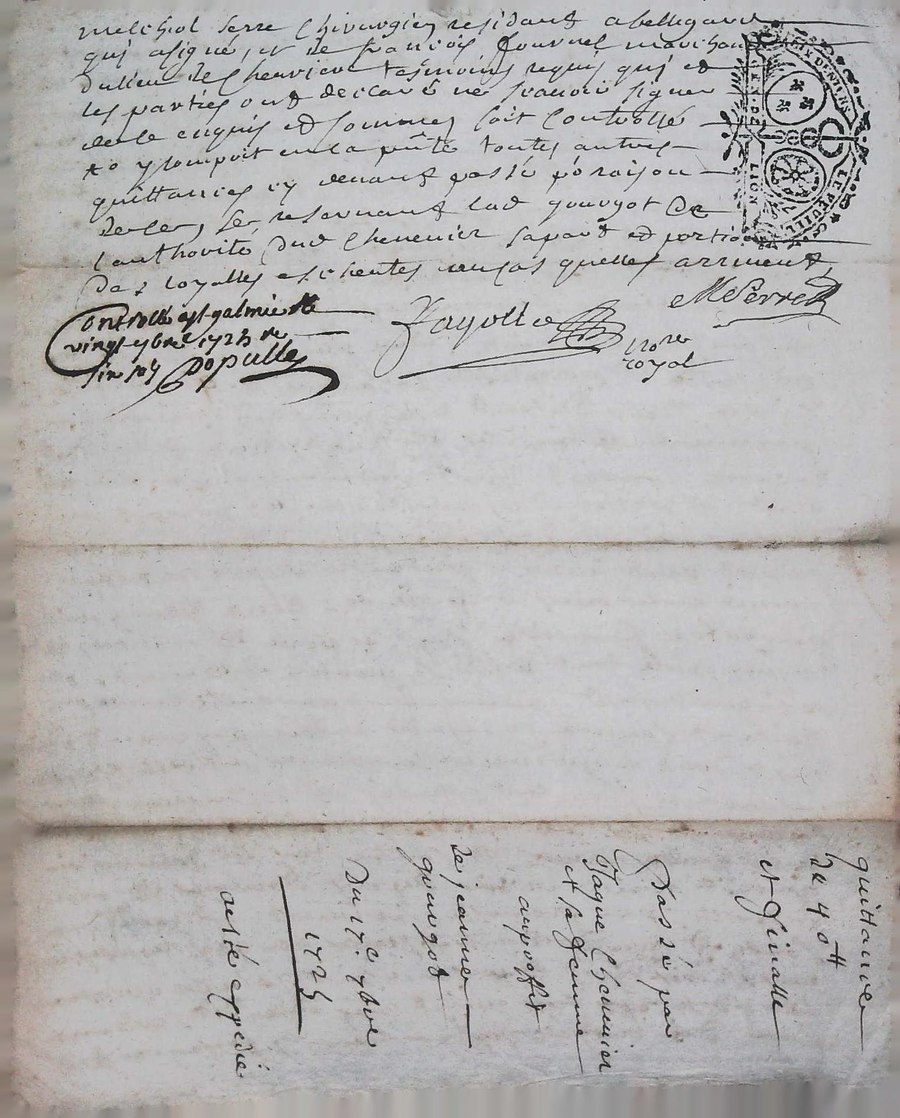 melchiol serre chirurgien residant a bellegarde
qui a signé, et sr françois fournel marchand
du lieu de chevrieres tesmoins requis qui et
les parties ont declaré ne scavoir signer
de ce enquis et sommes soit controllé
et y compris en la pnte toutes autres
quittances cy devant passé p raison
de ce, se reservant lad gourgot de
lauthorité dud Chenevier sa part et portion
des loyalles escheutes au cas quelles arrivent
MSerre
Fayolle
nore
royal
Controllé a st galmier le
vingt 7bre 1723 re
six sols
Populle
LION
LE FEUILL
quittance
de 40 tt
et finalle
Passé par
Jaque Chenevier
et sa femme
au proffit
de jeanne
gourgot
Du 17e 7bre
1723
a esté expedié